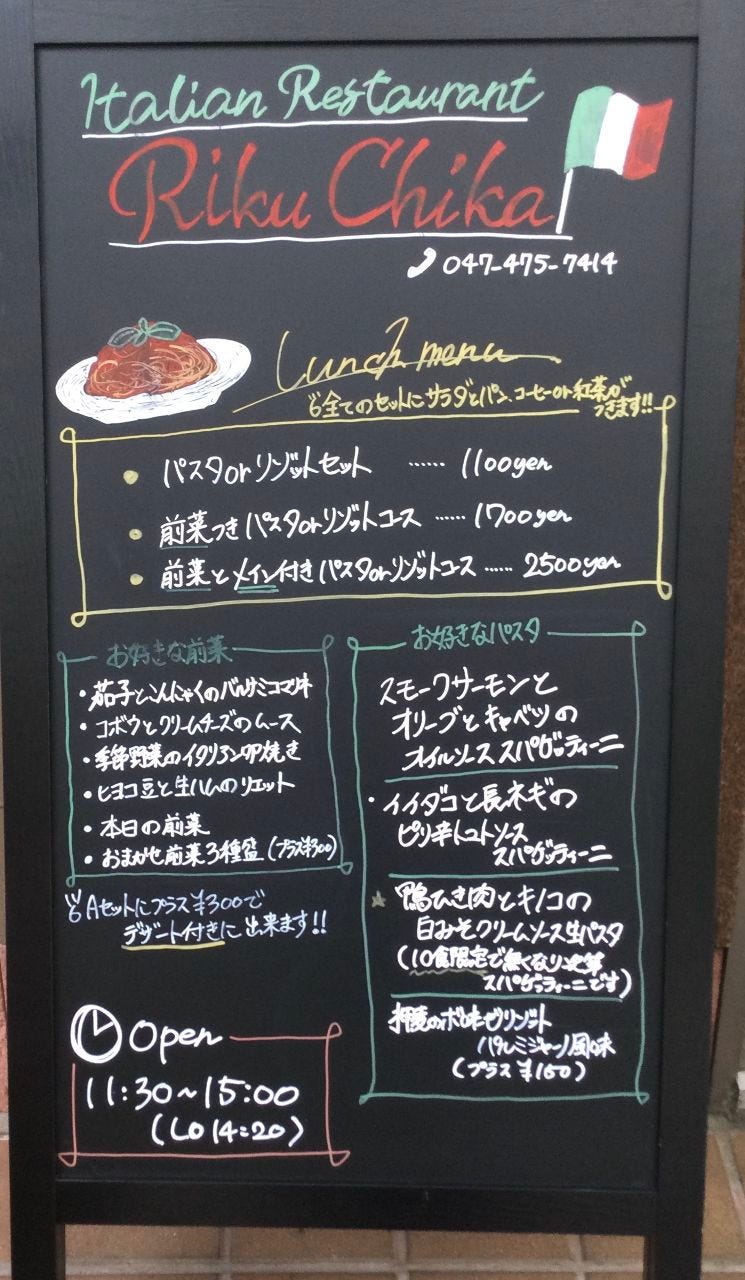 Italian Restaurant
Riku Chika
047-475-7414
Lunch menu
全てのセットにサラダとパン、コーヒーor紅茶が
つきます!!
・パスタorリゾットセット ...... 1100yen
・前菜つきパスタorリゾットコース ...... 1700yen
・前菜とメイン付きパスタorリゾットコース ...... 2500yen
お好きな前菜
・茄子とこんにゃくのバルサミコマリネ
・ゴボウとクリームチーズのムース
・季節野菜のイタリアン卵焼き
・ヒヨコ豆と生ハムのリエット
・本日の前菜
・おまかせ前菜3種盛(プラス¥300)
Aセットにプラス¥300で
デザート付きに出来ます!!
Open
11:30~15:00
(LO 14:20)
お好きなパスタ
スモークサーモンと
オリーブとキャベツの
オイルソース スパゲッティーニ
・イイダコと長ネギの
ピリ辛トマトソース
スパゲッティーニ
★鴨ひき肉とキノコの
白みそクリームソース生パスタ
(10食限定で無くなり次第
スパゲッティーニです)
押麦の リゾット
パルミジャーノ風味
(プラス¥150)